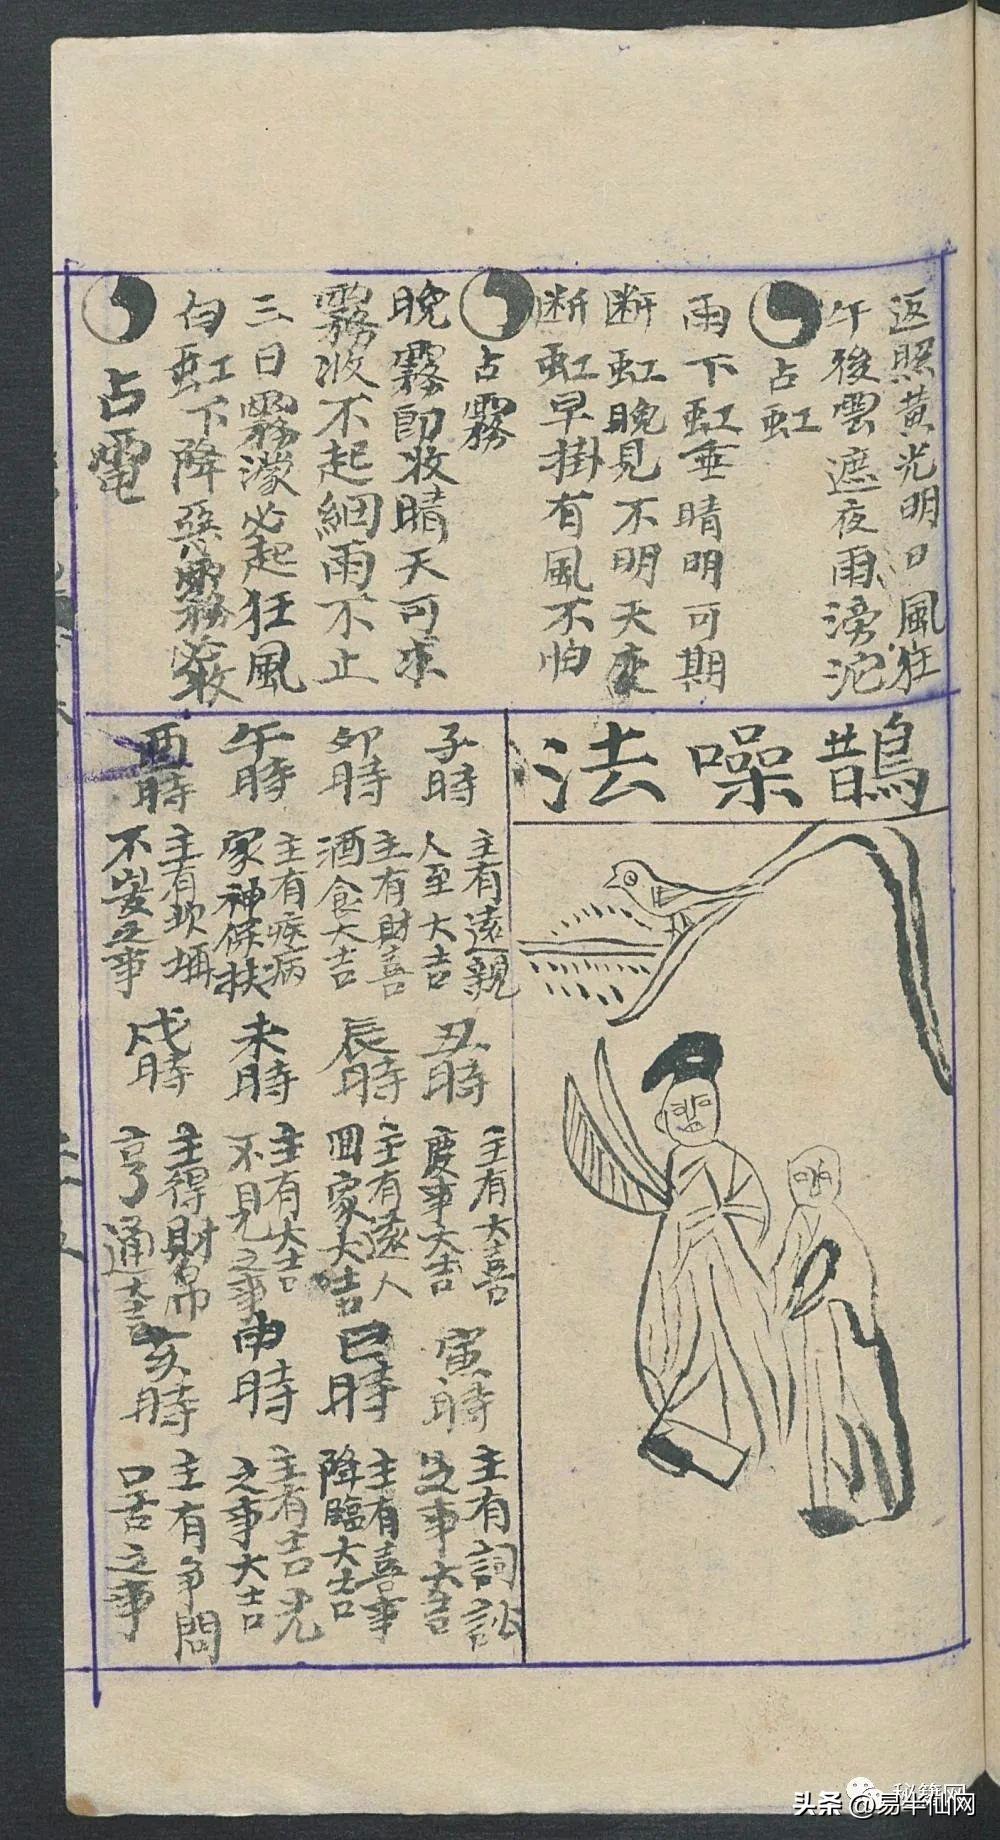 返照黄光明日風狂
午後雲遮夜雨滂沱
占虹
雨下虹垂晴明可期
断虹晚見不明天变
断虹早掛有風不怕
占霧
晚霧即收晴天可求
霧收不起細雨不止
三日霧濛必起狂風
白虹下降惡霧必收
占電
鵲噪法
子時
主有遠親
人至大吉
丑時
主有大喜
慶事大吉
寅時
主有詞訟
之事大吉
卯時
主有財喜
酒食大吉
辰時
主有遠人
回家大吉
巳時
主有喜事
降臨大吉
午時
主有疾病
家神保扶
未時
主有大吉
不見之事
申時
主有吉光
之事大吉
酉時
主有坎坷
不安之事
戌時
主得財帛
亨通大吉
亥時
主有争鬥
口舌之事
秘籍网
头条@易半仙网